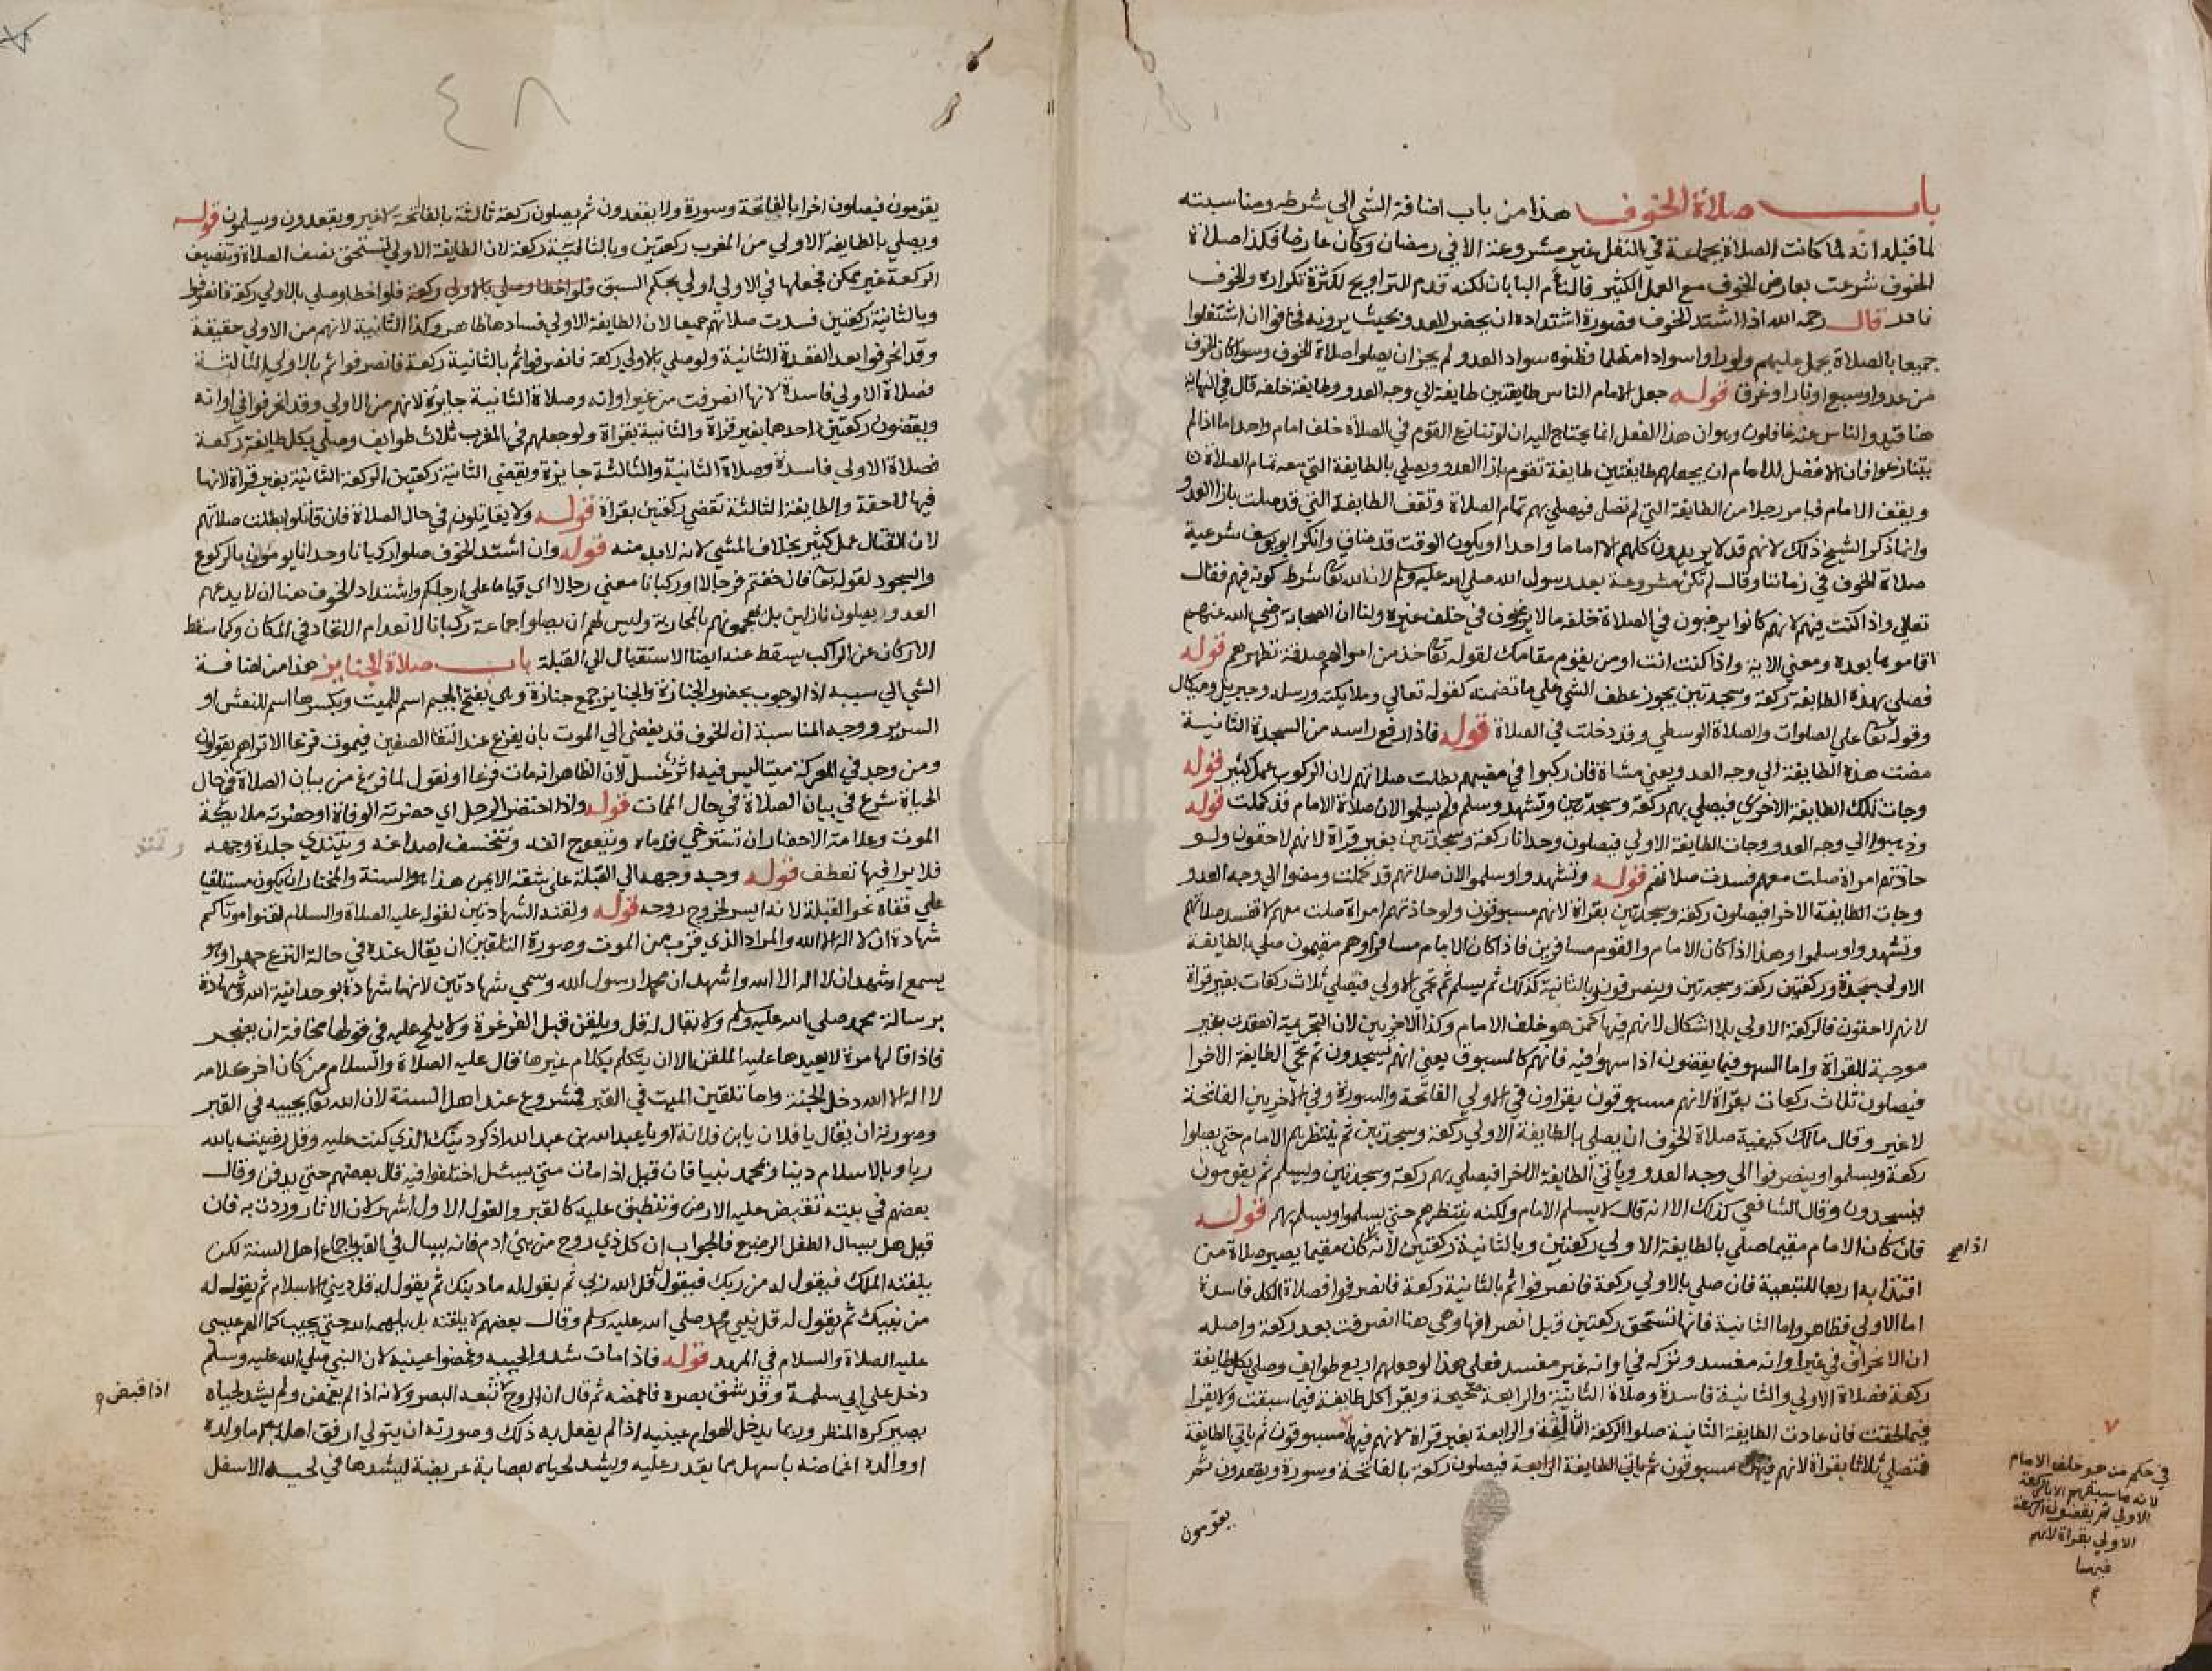 باب صلاة الخوف هذا من باب اضافة الشي الي شرطه ومناسبته
لما قبله انه لما كانت الصلاة بجماعة في النفل غير مشروعة الا في رمضان وكان عارضا فكذا صلاة
الخوف شرعت بعارض الخوف مع العمل الكثير فالتأم البابان لكنه قدم التراويح لكثرة تكراره والخوف
نادر قال رحمه الله اذا اشتد الخوف وصورة اشتداده ان يحضر العدو بحيث يرونه فخافوا ان اشتغلوا
جميعا بالصلاة يحمل عليهم ولو راوا سوادا مظلما فظنوه سواد العدو لم يجز ان يصلوا صلاة الخوف وسوا كان الخوف
من عدو او سبع او نار او غرق قوله جعل الامام الناس طايفتين طايفة الي وجه العدو وطايفة خلفه قال في النهاية
هنا قيد والناس عنه غافلون وهو ان هذا الفعل انما يحتاج اليه ان لو تنازع القوم في الصلاة خلف امام واحد اما اذا لم
يتنازعوا فان الافضل للامام ان يجعلهم طايفتين طايفة تقوم بازا العدو ويصلي بالطايفة التي معه تمام الصلاة
ويقف الامام فيامر رجلا من الطايفة التي لم تصل فيصلي بهم تمام الصلاة وتقف الطايفة التي قد صلت بازا العدو
وانما ذكر الشيخ ذلك لانهم قد لا يريدون كلهم الا اماما واحدا او يكون الوقت قد ضاق وانكر ابو يوسف شرعية
صلاة الخوف في زماننا وقال لم تكن مشروعة بعد رسول الله صلي الله عليه وسلم لان الله تعا شرط كونه فيهم فقال
تعالي واذا كنت فيهم لانهم كانوا يرغبون في الصلاة خلفه مالا يرغبون في خلف غيره ولنا ان الصحابة رضي الله عنهم
اقاموها بعده ومعني الاية واذا كنت انت او من يقوم مقامك لقوله تعا خذ من اموالهم صدقة تطهرهم قوله
فصلي بهذه الطايفة ركعة وسجدتين يجوز عطف الشي علي ما تضمنه كقوله تعالي وملايكته ورسله وجبريل وميكال
وقوله تعا علي الصلوات والصلاة الوسطي وقد دخلت في الصلاة قوله فاذا رفع راسه من السجدة الثانية
مضت هذه الطايفة الي وجه العدو يعني مشاة فان ركبوا في مضيهم بطلت صلاتهم لان الركوب عمل كثير قوله
وجات تلك الطايفة الاخري فيصلي بهم ركعة وسجدتين وتشهد وسلم ولم يسلموا لان صلاة الامام قد كملت قوله
وذهبوا الي وجه العدو وجات الطايفة الاولي فيصلون وحدانا ركعة وسجدتين بغير قراة لانهم لاحقون ولو
حاذتهم امراة صلت معهم فسدت صلاتهم قوله وتشهدوا وسلموا لان صلاتهم قد كملت ومضوا الي وجه العدو
وجات الطايفة الاخرا فيصلون ركعة وسجدتين بقراة لانهم مسبوقون ولو حاذتهم امراة صلت معهم لا تفسد صلاتهم
وتشهدوا وسلموا وهذا اذا كان الامام والقوم مسافرين فاذا كان الامام مسافرا وهم مقيمون صلي بالطايفة
الاولي سجدة وركعتين ركعة وسجدتين وينصرفون وبالثانية كذلك ثم يسلم ثم تجي الاولي فيصلي ثلاث ركعات بغير قراة
لانهم لاحقون فالركعة الاولي بلا اشكال لانهم فيها كمن هو خلف الامام وكذا الاخريين لان التحريمة انعقدت غير
موجبة للقراة واما السهو فيما يقضون اذا سهوا فيه فانهم كالمسبوق يعني انهم يسجدون ثم تجي الطايفة الاخرا
فيصلون ثلاث ركعات بقراة لانهم مسبوقون يقراون في الاولي الفاتحة والسورة وفي الاخريين الفاتحة
لا غير وقال مالك كيفية صلاة الخوف ان يصلي بالطايفة الاولي ركعة وسجدتين ثم ينتظرهم الامام حتي يصلوا
ركعة ويسلموا وينصرفوا الي وجه العدو وياتي الطايفة الاخرا فيصلي بهم ركعة وسجدتين ويسلم ثم يقومون
فيسجدون وقال الشافعي كذلك الا انه قال لا يسلم الامام ولكنه ينتظرهم حتي يسلموا ويسلم بهم قوله
فان كان الامام مقيما صلي بالطايفة الاولي ركعتين وبالثانية ركعتين لانه كان مقيما يصير صلاة من
اقتدا به اربعا للتبعية فان صلي بالاولي ركعة فانصرفوا ثم بالثانية ركعة فانصرفوا فصلاة الكل فاسدة
اما الاولي فظاهر واما الثانية فانها تستحق ركعتين قبل انصرافها وهي هنا انصرفت بعد ركعة واصله
ان الانحراف في غير اوانه مفسد وتركه في اوانه غير مفسد فعلي هذا لو جعلهم اربع طوايف وصلي بكل طايفة
ركعة فصلاة الاولي والثانية فاسدة وصلاة الثانية والرابعة صحيحة ويقرا كل طايفة فيما سبقت ولا يقرا
فيما لحقت فان عادت الطايفة الثانية صلوا الركعة الثالثة والرابعة بغير قراة لانهم فيها مسبوقون ثم ياتي الطايفة
فتصلي ثلاثا بقراة لانهم فيها مسبوقون ثم ياتي الطايفة الرابعة فيصلون ركعة بالفاتحة وسورة ويقعدون ثم
يقومون
اذا
في حكم من هو خلف الامام
لانه ما سبقهم الا بالركعة
الاولي ثم يقضون الركعة
الاولي بقراة لانهم
فيها
٤٨
يقومون فيصلون اخرا بالفاتحة وسورة ولا يقعدون ثم يصلون ركعة ثالثة بالفاتحة لا غير ويقعدون ويسلمون قوله
ويصلي بالطايفة الاولي من المغرب ركعتين وبالثانية ركعة لان الطايفة الاولي تستحق نصف الصلاة وتنصيف
الركعة غير ممكن فجعلها في الاولي اولي بحكم السبق فلو اخطا وصلي بالاولي ركعة فلو اخطا وصلي بالاولي ركعة فانصرفوا
وبالثانية ركعتين فسدت صلاتهم جميعا لان الطايفة الاولي فسادها ظاهر وكذا الثانية لانهم من الاولي حقيقة
وقد انحرفوا بعد القعدة للثانية ولو صلي بالاولي ركعة فانصرفوا ثم بالثانية ركعة فانصرفوا ثم بالاولي الثالثة
فصلاة الاولي فاسدة لانها انصرفت من غير اوانه وصلاة الثانية جايزة لانهم من الاولي وقد انحرفوا في اوانه
ويقضون ركعتين احدهما بغير قراة والثانية بقراة ولو جعلهم في المغرب ثلاث طوايف وصلي بكل طايفة ركعة
فصلاة الاولي فاسدة وصلاة الثانية والثالثة جايزة وتقضي الثانية ركعتين الركعة الثانية بغير قراة لانها
فيها لاحقة والطايفة الثالثة تقضي ركعتين بقراة قوله ولا يقاتلون في حال الصلاة فان قاتلوا بطلت صلاتهم
لان القتال عمل كثير بخلاف المشي لانه لا بد منه قوله وان اشتد الخوف صلوا ركبانا وحدانا يوموان بالركوع
والسجود لقوله تعا فان خفتم فرجالا او ركبانا معني رجالا اي قياما علي ارجلكم واشتداد الخوف هنا ان لا يدعهم
العدو يصلون نازلين بل يهجمونهم بالمحاربة وليس لهم ان يصلوا جماعة ركبانا لانعدام الاتحاد في المكان وكما سقط
الاركان عن الراكب يسقط عنه ايضا الاستقبال الي القبلة باب صلاة الجنايز هذا من اضافة
الشي الي سببه اذ الوجوب بحضور الجنازة والجنايز جمع جنازة وهي بفتح الجيم اسم للميت وبكسرها اسم للنعش او
السرير ووجه المناسبة ان الخوف قد يفضي الي الموت بان يفزع عند التقا الصفين فيموت فزعا الا تراهم يقولون
ومن وجد في المعركة ميتا ليس فيه اثر غسل لان الظاهر انه مات فزعا او نقول لما فرغ من بيان الصلاة في حال
الحياة شرع في بيان الصلاة في حال الممات قوله واذا احتضر الرجل اي حضرته الوفاة او حضرته ملايكة
الموت وعلامة الاحتضار ان تسترخي قدماه ويتعوج انفه وتنخسف اصداغه ويتندي جلدة وجهه
فلا يرا فيها تعطف قوله وجه وجهه الي القبلة علي شقه الايمن هذا هو السنة والمختار ان يكون مستلقيا
علي قفاه نحو القبلة لانه ايسر لخروج روحه قوله ولقنه الشهادتين لقوله عليه الصلاة والسلام لقنوا موتاكم
شهادة ان لا اله الا الله والمراد الذي قرب من الموت وصورة التلقين ان يقال عنده في حالة النزع جهرا وهو
يسمع اشهد ان لا اله الا الله واشهد ان محمدا رسول الله وسمي شهادتين لانها شهادة بوحدانية الله وشهادة
برسالة محمد صلي الله عليه وسلم ولا يقال له قل ويلقن قبل الغرغرة ولا يلح عليه في قولها مخافة ان يضجر
فاذا قالها مرة لا يعيدها عليه الملقن الا ان يتكلم بكلام غيرها قال عليه الصلاة والسلام من كان اخر كلامه
لا اله الا الله دخل الجنة واما تلقين الميت في القبر فمشروع عند اهل السنة لان الله تعا يحييه في القبر
وصورته ان يقال يا فلان يا بن فلانة او يا عبد الله بن عبد الله اذكر دينك الذي كنت عليه وقل رضيت بالله
ربا وبالاسلام دينا وبمحمد نبيا فان قيل اذا مات متي يسئل اختلفوا فيه قال بعضهم حتي يدفن وقال
بعضهم في بيته تقبض عليه الارض وتنطبق عليه كالقبر والقول الاول اشهر لان الاثار وردت به فان
قيل هل يسال الطفل الرضيع فالجواب ان كل ذي روح من بني ادم فانه يسال في القبر باجماع اهل السنة لكن
يلقنه الملك فيقول له من ربك فيقول قل الله ربي ثم يقول له ما دينك ثم يقول له قل ديني الاسلام ثم يقول له
من نبيك ثم يقول له قل نبيي محمد صلي الله عليه وسلم وقال بعضهم لا يلقنه بل يلهمه الله حتي يجيب كما الهم عيسي
عليه الصلاة والسلام في المهد قوله فاذا مات شدوا لحييه وغمضوا عينيه لان النبي صلي الله عليه وسلم
دخل علي ابي سلمة وقد شق بصره فاغمضه ثم قال ان الروح تبعه البصر ولانه اذا لم يغمض ولم يشد لحياه
يصير كره المنظر وربما يدخل الهوام عينيه اذا لم يفعل به ذلك وصورته ان يتولي ارفق اهله به اما ولده
او والده اغماضه باسهل مما يقدر عليه ويشد لحياه بعصابة عريضة ليشدها في لحيه الاسفل
اذا قبض